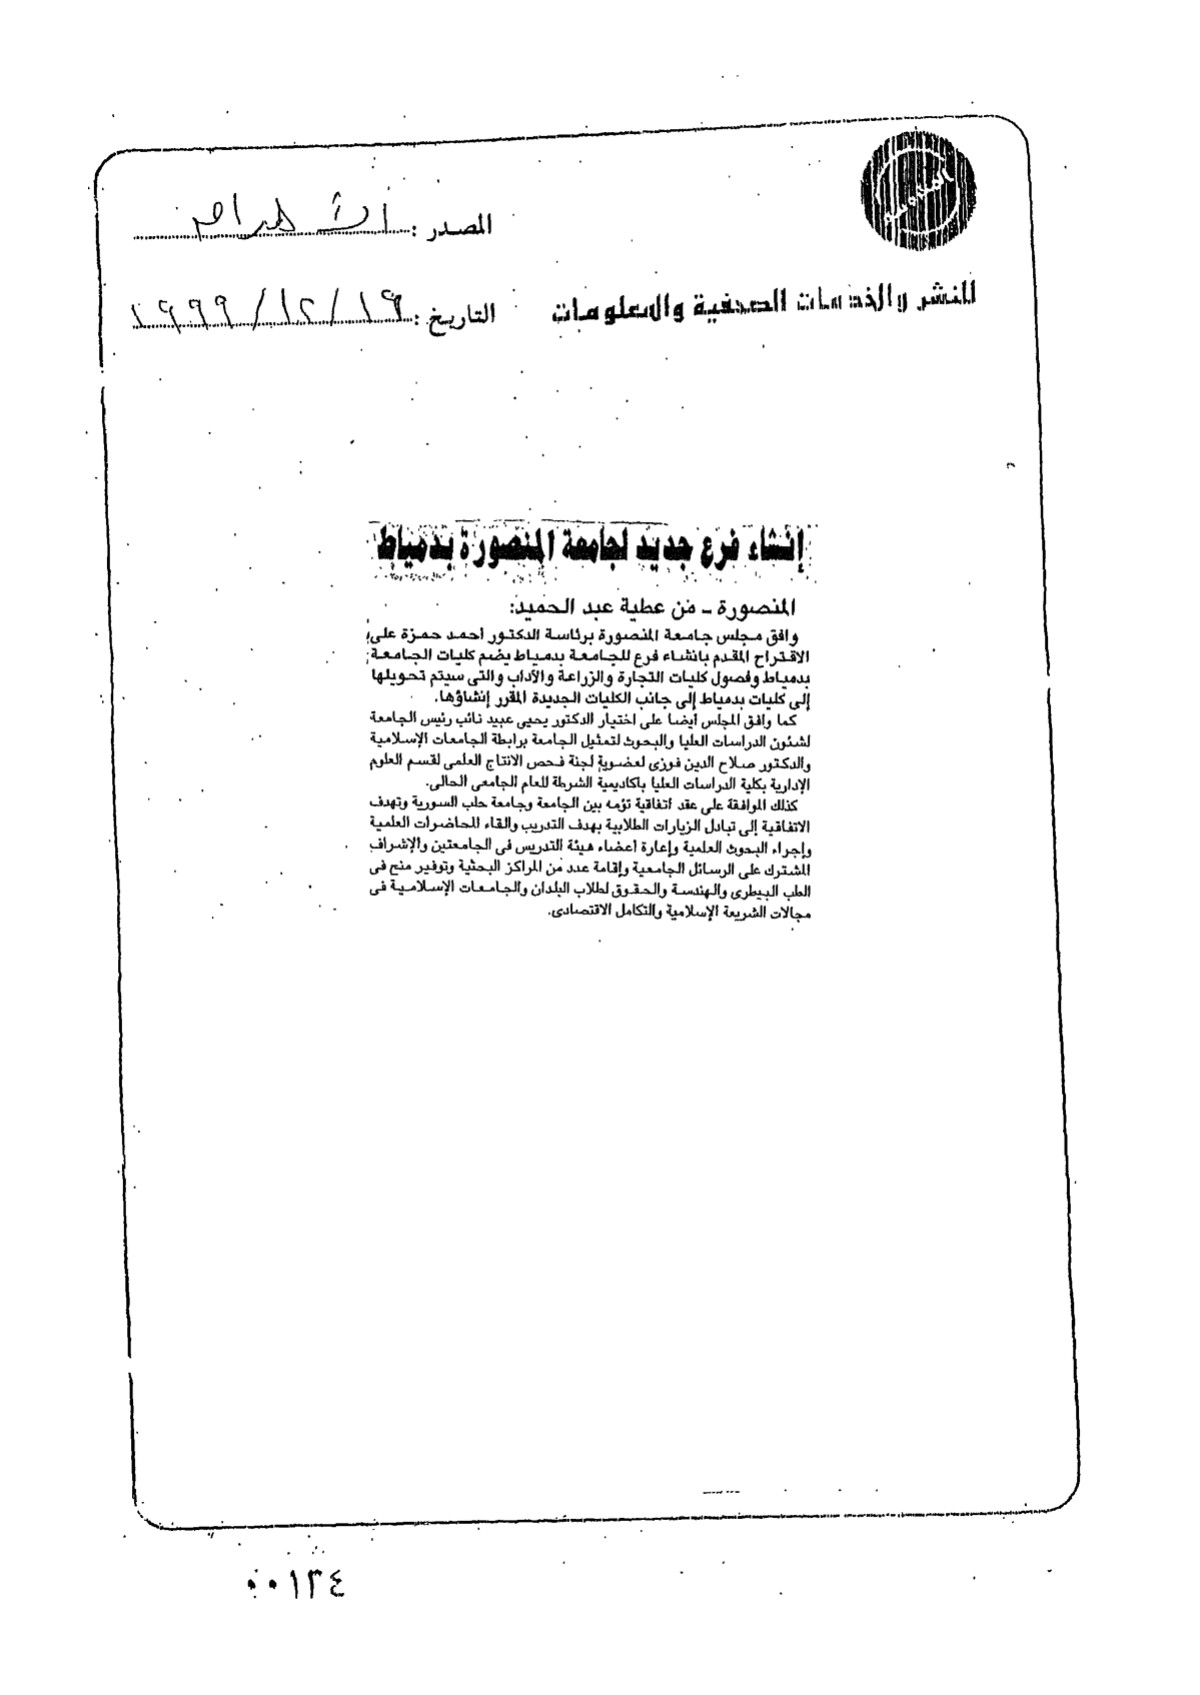 المصدر : الأهرام
للنشر والخدمات الصحفية والمعلومات
التاريخ : ١٩٩٩/١٢/١٩
إنشاء فرع جديد لجامعة المنصورة بدمياط
المنصورة ـ من عطية عبد الحميد:
وافق مجلس جامعة المنصورة برئاسة الدكتور أحمد حمزة على
الاقتراح المقدم بانشاء فرع للجامعة بدمياط يضم كليات الجامعة
بدمياط وفصول كليات التجارة والزراعة والآداب والتى سيتم تحويلها
إلى كليات بدمياط إلى جانب الكليات الجديدة المقرر إنشاؤها.
كما وافق المجلس أيضا على اختيار الدكتور يحيى عبيد نائب رئيس الجامعة
لشئون الدراسات العليا والبحوث لتمثيل الجامعة برابطة الجامعات الإسلامية
والدكتور صلاح الدين فوزى لعضوية لجنة فحص الانتاج العلمى لقسم العلوم
الإدارية بكلية الدراسات العليا بأكاديمية الشرطة للعام الجامعى الحالى.
كذلك الموافقة على عقد اتفاقية تؤمه بين الجامعة وجامعة حلب السورية وتهدف
الاتفاقية إلى تبادل الزيارات الطلابية بهدف التدريب والقاء المحاضرات العلمية
وإجراء البحوث العلمية وإعارة أعضاء هيئة التدريس فى الجامعتين والإشراف
المشترك على الرسائل الجامعية وإقامة عدد من المراكز البحثية وتوفير منح فى
الطب البيطرى والهندسة والحقوق لطلاب البلدان والجامعات الإسلامية فى
مجالات الشريعة الإسلامية والتكامل الاقتصادى.
٠٠١٣٤